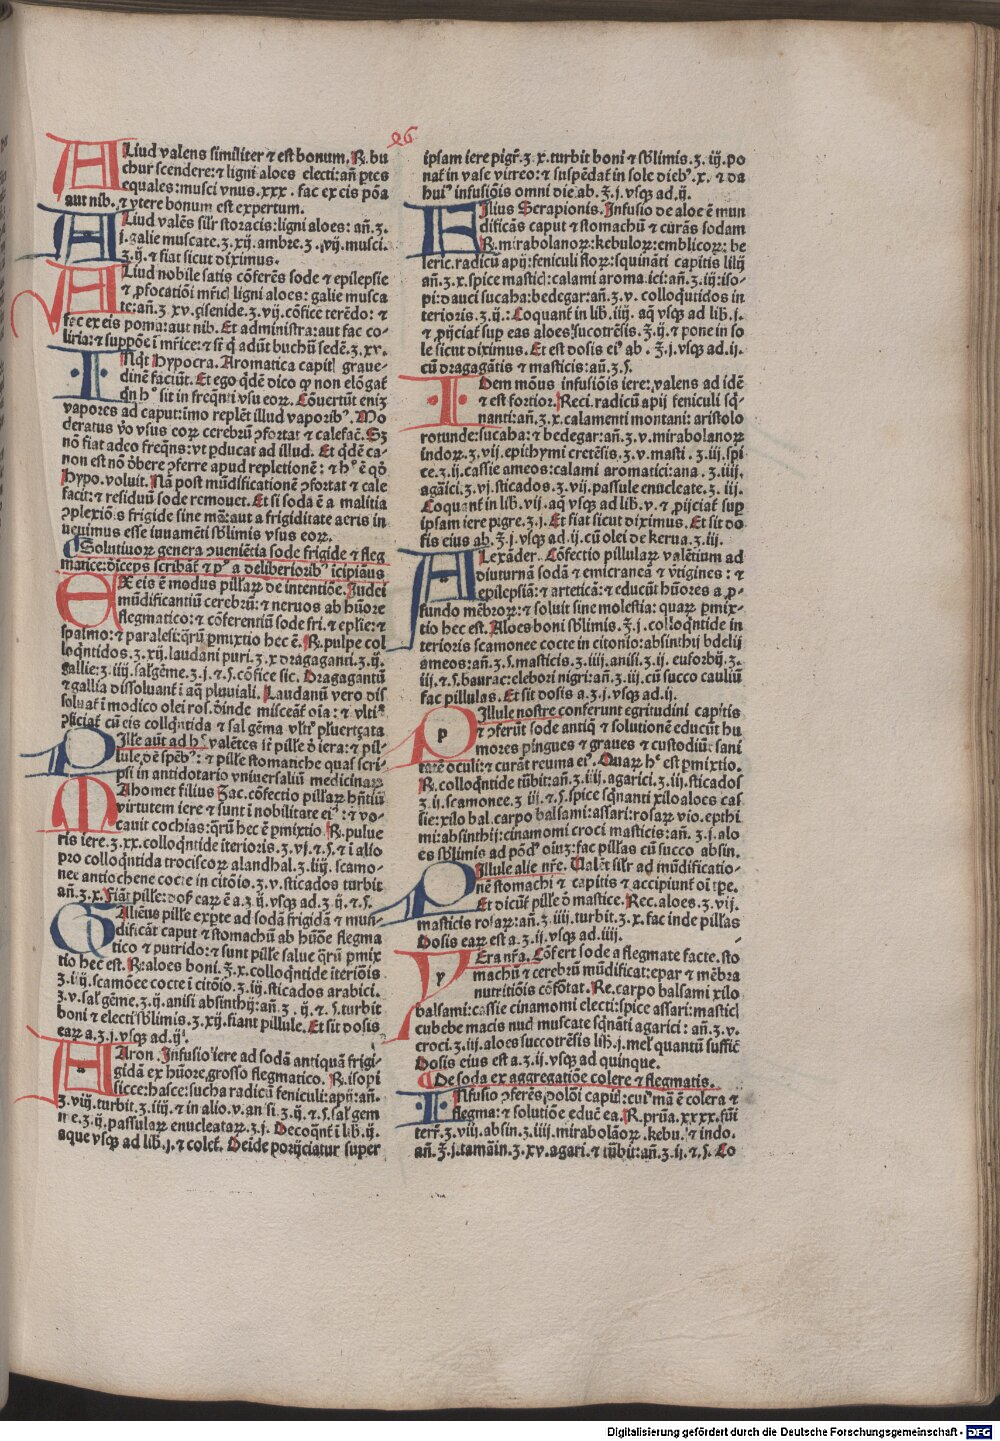 96
ALiud valens similiter ⁊ est bonum. ℞. bu
chur scendere: ⁊ ligni aloes electi: añ ptes
equales: musci vnus. xxx. fac ex eis põa
aut nib. ⁊ vtere bonum est expertum.
ALiud valẽs silr storacis: ligni aloes: añ. ʒ.
j. galie muscate. ʒ. xij. ambre. ʒ. vij. musci.
ʒ. ij. ⁊ fiat sicut diximus.
ALiud nobile satis cõferẽs sode ⁊ epilepsie
⁊ p̱focatiõi mr̃icl ligni aloes: galie musca
te: añ. ʒ xv. ʒ. vij. cõfice terẽdo: ⁊
fac ex eis poma: aut nib. Et administra: aut fac co-
liria: ⁊ suppõe ĩ mr̃ice: ⁊ sr̃ q̃ adũt buchũ sedẽ. ʒ. xv.
INq̃t hypocra. Aromatica capiti graue-
dinẽ faciũt. Et ego q̃dẽ dico ꝙ non elõgat̃
q̃n hᵒ sit in freq̃nti vsu eoꝝ. Cõuertũt eniʒ
vapores ad caput: ĩmo replẽt illud vaporibꝰ. Mo
deratus ṽo vsus eoꝝ cerebrũ ꝯfortat ⁊ calefac̃. Sʒ
nõ fiat adeo freq̃ns: vt ꝑducat ad illud. Et q̃dẽ ca-
non est nõ õbere ꝯferre apud repletionẽ: ⁊ hᵒ ẽ qõ
hypo. voluit. Nã post mũdificationẽ ꝯfortat ⁊ cale
facit: ⁊ residuũ sode remouet. Et si soda ẽ a malitia
ꝯplexiõis frigide sine mã: aut a frigiditate aeris in
uenimus esse iuuamẽti sb̃limis vsus eoꝝ.
Solutiuoꝝ genera ꝯueniẽtia sode frigide ⁊ fleg
matice: d̃iceps scribãt̃ ⁊ pᵒ a deliberioribꝰ ĩcipiãus
EX eis ẽ modus pill̃aꝝ de intentiõe. Judei
mũdificantiũ cerebrũ: ⁊ neruos ab hũore
flegmatico: ⁊ cõferentiũ sode fri. ⁊ epl̃ie: ⁊
spasmo: ⁊ paralesi: q̃rũ ꝑmixtio hec ẽ. ℞. pulpe col
loq̃ntidos. ʒ. xij. laudani puri. ʒ. x dragaganti. ʒ. ij.
gallie: ʒ. iiij. sal̃gẽme. ʒ. j. ⁊. s. cõfice sic. Dragagantũ
⁊ gallia dissoluant̃ ĩ aq̃ pluuiali. Laudanũ vero dis
soluat̃ ĩ modico olei ros. d̃inde misceãt̃ oĩa: ⁊ vltiᵒ
ꝯficiat̃ cũ eis collq̃ntida ⁊ sal gẽma vltĩ
PIll̃e aũt ad hᵒ valẽtes sr̃ pill̃e õ iera: ⁊ pil-
lule õẽ spẽbꝰ: ⁊ pill̃e stomatiche quas scri-
psi in antidotario vniuersaliũ medicinaꝝ
MAhomet filius Zac. cõfectio pill̃aꝝ hñtiũ
virtutem iere ⁊ sunt ĩ nobilitate eiꝰ: ⁊ vo-
cauit cochias: q̃rũ hec ẽ ꝑmixtio. ℞. pulue
ris iere. ʒ. xx. colloq̃ntide ĩterioris. ʒ. vj. ⁊. s. ⁊ ĩ alio
pro colloq̃ntida trociscoꝝ alandhal. ʒ. liij. scamo-
nee antiochene cocte in citõio. ʒ. v. sticados turbit
añ. ʒ. x. Fiãt pill̃e: dos̃ eaꝝ ẽ a. ʒ. ij. vsqꝫ ad. ʒ. ij. ⁊. s.
GAliẽus pill̃e expte ad sodã frigidã ⁊ mun-
dificãt caput ⁊ stomachũ ab hũõe flegma
tico ⁊ putrido: ⁊ sunt pill̃e salue q̃rũ ꝑmix
tio hec est. ℞: aloes boni. ʒ. x. colloq̃ntide ĩteriõis
ʒ. iij. scamõee cocte ĩ citõio. ʒ. iij. sticados arabici.
ʒ. v. sal̃ gẽme. ʒ. ij. anisi absinthij: añ. ʒ. ij. ⁊ s. turbit
boni ⁊ electi sb̃limis. ʒ. xij. fiant pillule. Et sit dosis
eaꝝ a. ʒ. j. vsqꝫ ad. ij.
AAron. Infusio iere ad sodã antiquã frigi-
gidã ex hũore, grosso flegmatico. ℞. isopi
sicce: hasce: sucha radicũ feniculi: apij: añ.
ʒ. viij. turbit. ʒ. iiij. ⁊ in alio. v. anisi. ʒ. ij. ⁊. s. sal̃ gem
me. ʒ. ij. passulaꝝ enucleataꝝ. ʒ. j. Decoq̃nt̃ ĩ lib. ij.
aque vsqꝫ ad lib. j. ⁊ colet̃. Deide porijciatur super
ipsam iere pigr̃. ʒ. x. turbit boni ⁊ sb̃limis. ʒ. iij. po
nat̃ in vase vitreo: ⁊ suspẽdat̃ in sole diebꝰ. x. ⁊ da
huiꝰ infusiõis omni die ab. ʒ̃. j. vsqꝫ ad. ij.
FIlius Serapionis. Infusio de aloe ẽ mun
dificãs caput ⁊ stomachũ ⁊ curãs sodam
℞. mirabolanoꝝ: kebuloꝝ: emblicoꝝ: be
leric. radicũ apij: feniculi floꝝ: squinãti capitis lilij
añ. ʒ. x. spice masticl: calami aroma. ici: añ. ʒ. iij: iso-
pi: dauci sucaba: bedegar: añ. ʒ. v. colloq̃tidos in
terioris. ʒ. ij.: Coquant̃ in lib. iiij. aq̃ vsqꝫ ad lib. j.
⁊ p̱ijciat̃ suꝑ eas aloes sucotrẽs. ʒ̃. ij. ⁊ pone in so
le sicut diximus. Et est dosis eiꝰ ab. ʒ̃. j. vsqꝫ ad. ij.
cũ dragagãtis ⁊ masticis: añ. ʒ. s.
IDem mõus infusiõis iere:, valens ad idẽ
⁊ est fortior. Reci. radicũ apij feniculi sq̃-
nanti: añ. ʒ. x. calamenti montani: aristolo
rotunde: sucaba: ⁊ bedegar: añ. ʒ. v. mirabolanoꝝ
indoꝝ. ʒ. vij. epithymi cretẽsis. ʒ. v. masti. ʒ. iij. spi
ce. ʒ. ij. cassie ameos: calami aromatici: ana. ʒ. iiij.
agãici. ʒ. vj. sticados. ʒ. vij. passule enucleate. ʒ. iij.
Coquant̃ in lib. vij. aq̃ vsqꝫ ad lib. v. ⁊ p̱ijciat̃ suꝑ
ipsam iere pigre. ʒ. j. Et fiat sicut diximus. Et sit do
sis eius ab. ʒ̃. j. vsqꝫ ad. ij. cũ olei de kerua. ʒ. iij.
ALexãder. Cõfectio pillulaꝝ valẽtium ad
diuturnã sodã ⁊ emicraneã ⁊ ṽtigines: ⁊
epilepsiã: ⁊ arteticã: ⁊ educũt hũores a p̱-
fundo mẽbroꝝ: ⁊ soluit sine molestia: quaꝝ ꝑmix-
tio hec est. Aloes boni sb̃limis. ʒ̃. j. colloq̃ntide in
terioris scamonee cocte in citonio: absinthij bdelij
ameos: añ. ʒ. s. masticis. ʒ. iiij. anisi. ʒ. ij. euforbij. ʒ.
iij. ⁊. s. baurac: elebori nigri: añ. ʒ. iij. cũ succo cauliũ
fac pillulas. Et sit dosis a. ʒ. j. vsqꝫ ad. ij.
PIllule nostre conferunt egritudini capitis
⁊ ꝯferũt sode antiq̃ ⁊ solutionẽ educũt hu
mores pingues ⁊ graues ⁊ custodiũt sani
tatẽ oculi: ⁊ curãt reuma eiꝰ. Quaꝝ hᵒ est ꝑmixtio.
℞. colloq̃ntide tũbit: añ. ʒ. iiij. agarici. ʒ. iij. sticados
ʒ. ij. scamonee. ʒ iij. ⁊. s. spice sq̃nanti xiloaloes cas
sie: xilo bal. carpo balsami: assari: rosaꝝ vio. epithi
mi: absinthij: cinamomi croci masticis: añ. ʒ. j. alo
es sb̃limis ad põdꝰ oĩuʒ: fac pill̃as cũ succo absin.
PIllule alie nr̃e. Valẽt sil̃r ad mũdificatio-
nẽ stomachi ⁊ capitis ⁊ accipiunt̃ oĩ tꝑe.
Et dicũt̃ pill̃e õ mastice. Rec. aloes. ʒ. vij.
masticis rosaꝝ: añ. ʒ. iiij. turbit. ʒ. x. fac inde pill̃as
Dosis eaꝝ est a. ʒ. ij. vsqꝫ ad. iiij.
YEra nr̃a. Cõfert sode a flegmate facte. sto
machũ ⁊ cerebrũ mũdificat: epar ⁊ mẽbra
nutritiõis cõfõtat. Re. carpo balsami xilo
balsami: cassie cinamomi electi: spice assari: masticl
cubebe macis nuc̃ muscate sq̃nãti agarici: añ. ʒ. v.
croci. ʒ. iij. aloes succotrẽsis lib. j. mel̃ quantũ suffic̃
Dosis eius est a. ʒ. ij. vsqꝫ ad quinque.
De soda ex aggregatiõe colere ⁊ flegmatis.
INfusio ꝯferẽs, dolõi capit̃: cuiꝰ mã ẽ colera ⁊
flegma: ⁊ solutiõe educ̃ ea. ℞. prũa. xxxx. fũi
terr̃. ʒ. viij. absin. ʒ. iiij. mirabolãoꝝ. kebu. ⁊ indo.
añ. ʒ̃. j. tamãin. ʒ. xv. agari. ⁊ tũbit: añ. ʒ. ij. ⁊. s. Co
Digitalisierung gefördert durch die Deutsche Forschungsgemeinschaft - DFG